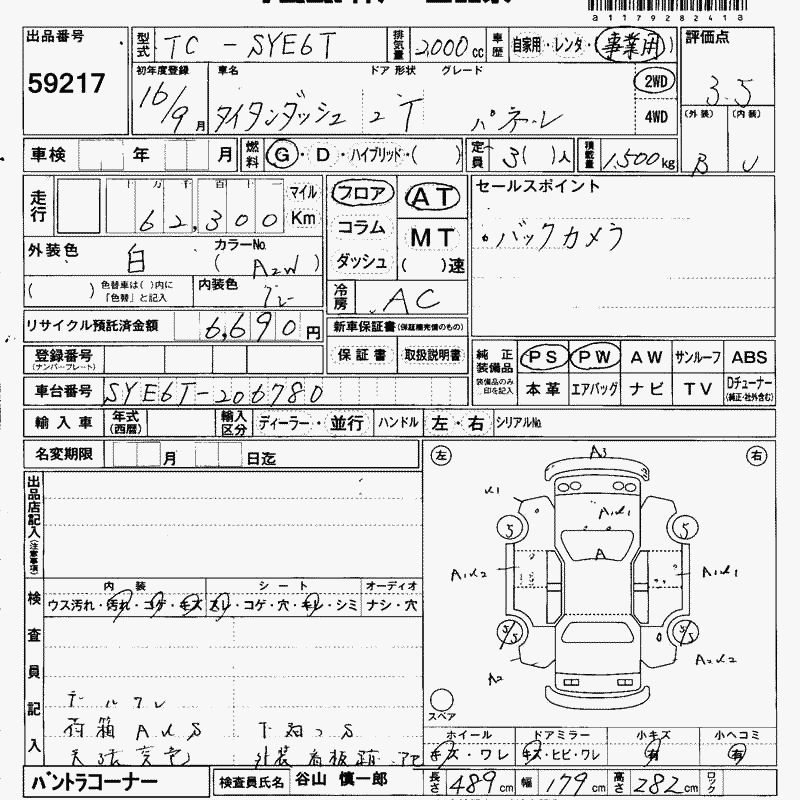 a1179282413
出品番号 型式 TC - SYE6T 排気量 2,000 cc 車歴 自家用・レンタ・事業用) 評価点
59217 3.5
初年度登録 車名 ドア 形状 グレード 2WD
16/9月 タイタンダッシュ 2 T パネル 4WD
(外装) (内装)
B
車検 年 月 燃料 G・D・ハイブリッド・( ) 定員 3( )人 積載量 1,500kg
走行 十 万 千 百 十 一 マイル フロア AT セールスポイント
62,300 Km コラム MT ・バックカメラ
外装色 白 カラーNo. ( A2W ) ダッシュ ( )速
( ) 色替車は( )内に「色替」と記入 内装色 グレー 冷房 AC
リサイクル預託済金額 6,690円 新車保証書(保証継続のもの)
登録番号(ナンバープレート) 保証書 取扱説明書 純正装備品 PS PW AW サンルーフ ABS
車台番号 SYE6T-206780 装備品のみ印を記入 本革 エアバッグ ナビ TV Dチューナー(純正・社外含む)
輸入車 年式(西暦) 輸入区分 ディーラー・並行 ハンドル 左・右 シリアルNo.
名変期限 月 日迄
左 A3 右
出品店記入(注意事項)
A1
5 5
A
5/5 5/5
A2
スペア
検査員記入
内装 シート オーディオ
ウス汚れ・汚れ・コゲ・キズ スレ・コゲ・穴・キレ・シミ ナシ・穴
ホイール ドアミラー 小キズ 小ヘコミ
キズ・ワレ キズ・ヒビ・ワレ 有 有
バントラコーナー 検査員氏名 谷山 慎一郎 長さ 489cm 幅 179cm 高さ 282cm ロック